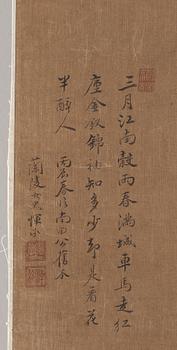 三月江南穀雨春滿城車馬走紅
塵金釵錦袖知多少却是看花
半醉人
丙辰春仿南田公舊本
蘭陵女史惲冰